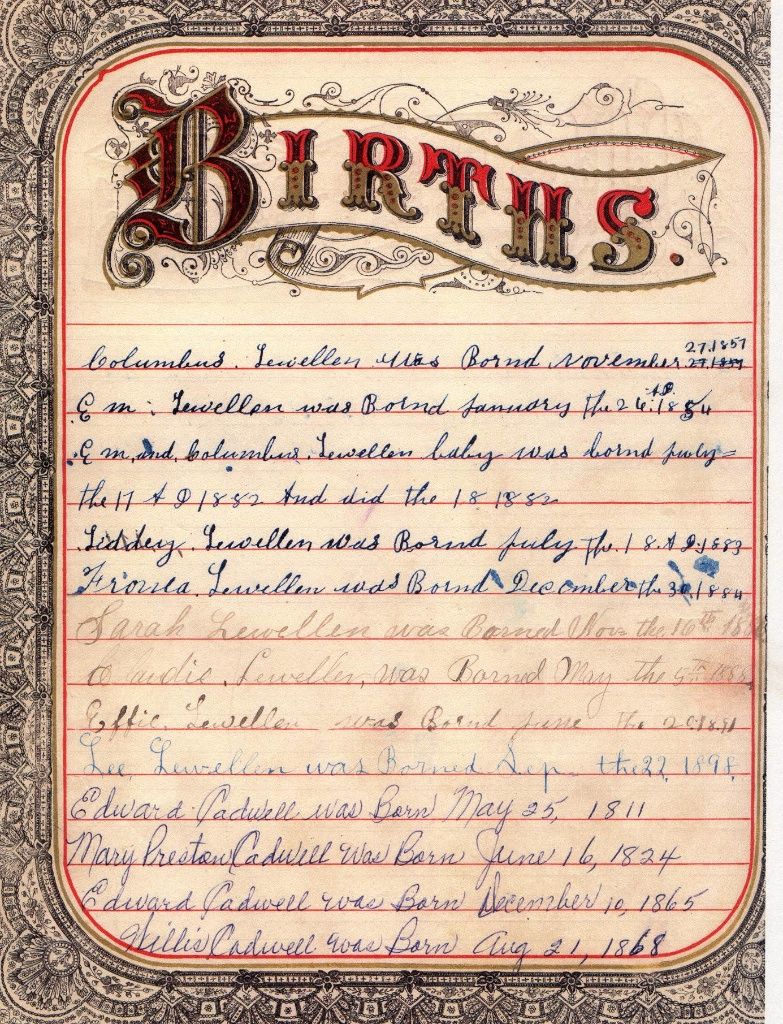 BIRTHS.
27.1857
Columbus. Lewellen was Bornd November
Em. Lewellen was Bornd January the 26. AD. 1854
Em, and, Columbus. Lewellen baby was bornd july
the 17 A D 1882 And did the 18 1882
Lewellen was Bornd july the 18. A D. 1883
Lewellen was Bornd December the 30. 1884
Sarah Lewellen was Borned Nov the 16th
Lewellen, was Borned May the 5th 1888
Effie. Lewellen was Bornd june the 20 1891
Lee, Lewellen was Borned Sep the 22, 1898.
Edward Cadwell was Born May 25, 1811
Mary Preston Cadwell Was Born June 16, 1824
Edward Cadwell was Born December 10, 1865
Willis Cadwell was Born Aug 21, 1868